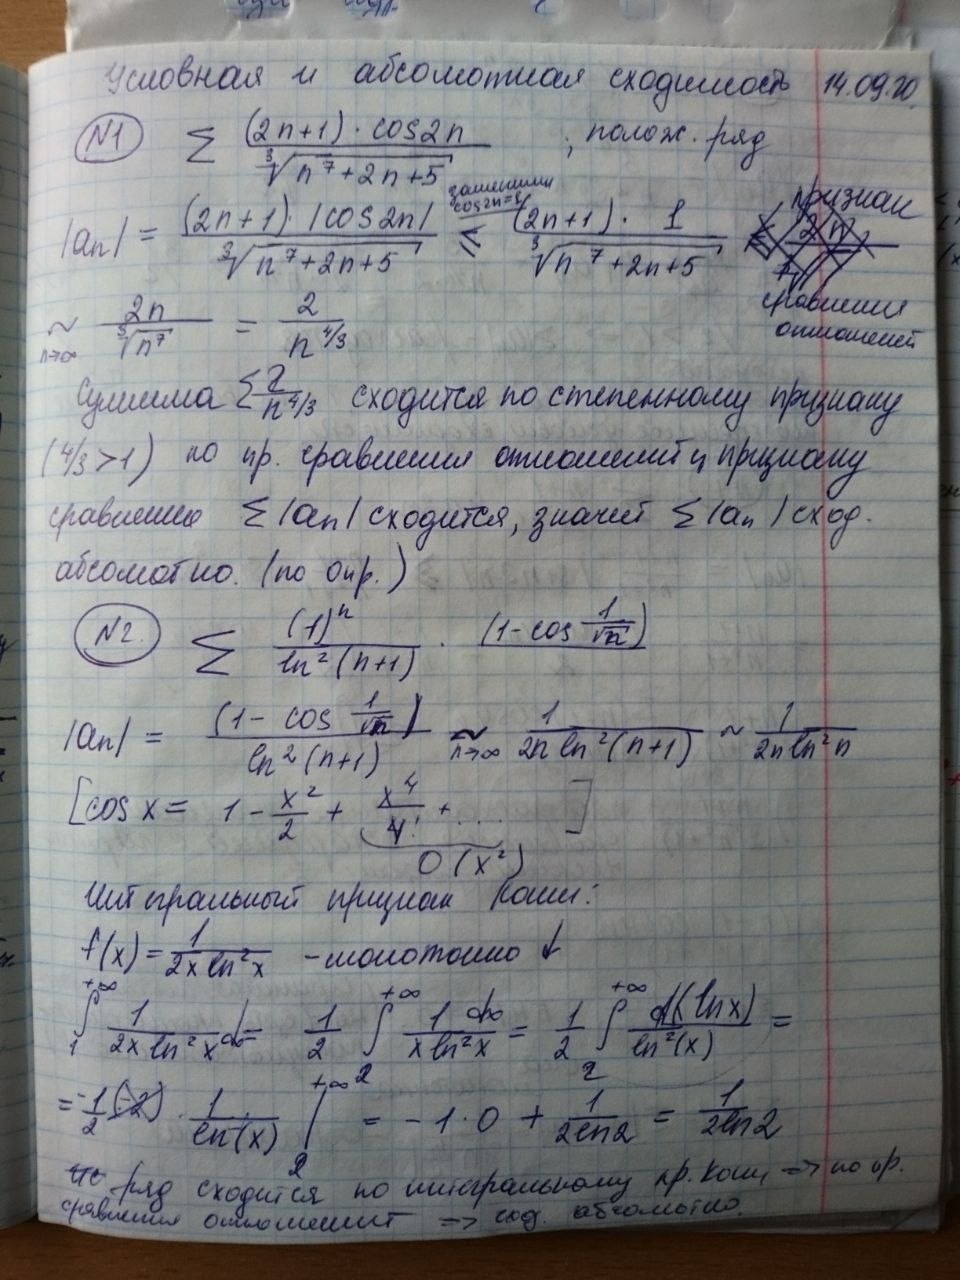 Условная и абсолютная сходимость 14.09.20.
№1 Σ (2n+1)·cos2n / ∛(n⁷+2n+5) ; полож. ряд
|an| = (2n+1)·|cos2n| / ∛(n⁷+2n+5) ≤ (2n+1)·1 / ∛(n⁷+2n+5) признак
заменили cos2n=1
сравнения отношений
~ n→∞ 2n / ∛n⁷ = 2 / n^4/3
Сумма Σ 2/n^4/3 сходится по степенному признаку
(4/3>1) по пр. сравнения отношений и признаку
сравнение Σ|an| сходится, значит Σ|an| сход.
абсолютно. (по опр.)
№2. Σ (1)ⁿ / ln²(n+1) · (1-cos 1/√n)
|an| = (1 - cos 1/√n) / ln²(n+1) ~ n→∞ 1 / 2n ln²(n+1) ~ 1 / 2n ln²n
[cos x = 1 - x²/2 + x⁴/4! + .... ]
O(x²)
Интегральный признак Коши:
f(x) = 1 / 2x ln²x - монотонно ↓
∫₁^+∞ 1 / 2x ln²x dx = 1/2 ∫₂^+∞ 1 dx / x ln²x = 1/2 ∫₂^+∞ d(ln x) / ln²(x) =
= -1/2 · 1 / ln(x) |₂^+∞ = -1·0 + 1/2ln2 = 1/2ln2
ряд сходится по интегральному пр. Коши => по пр.
сравнения отношений => сход. абсолютно.